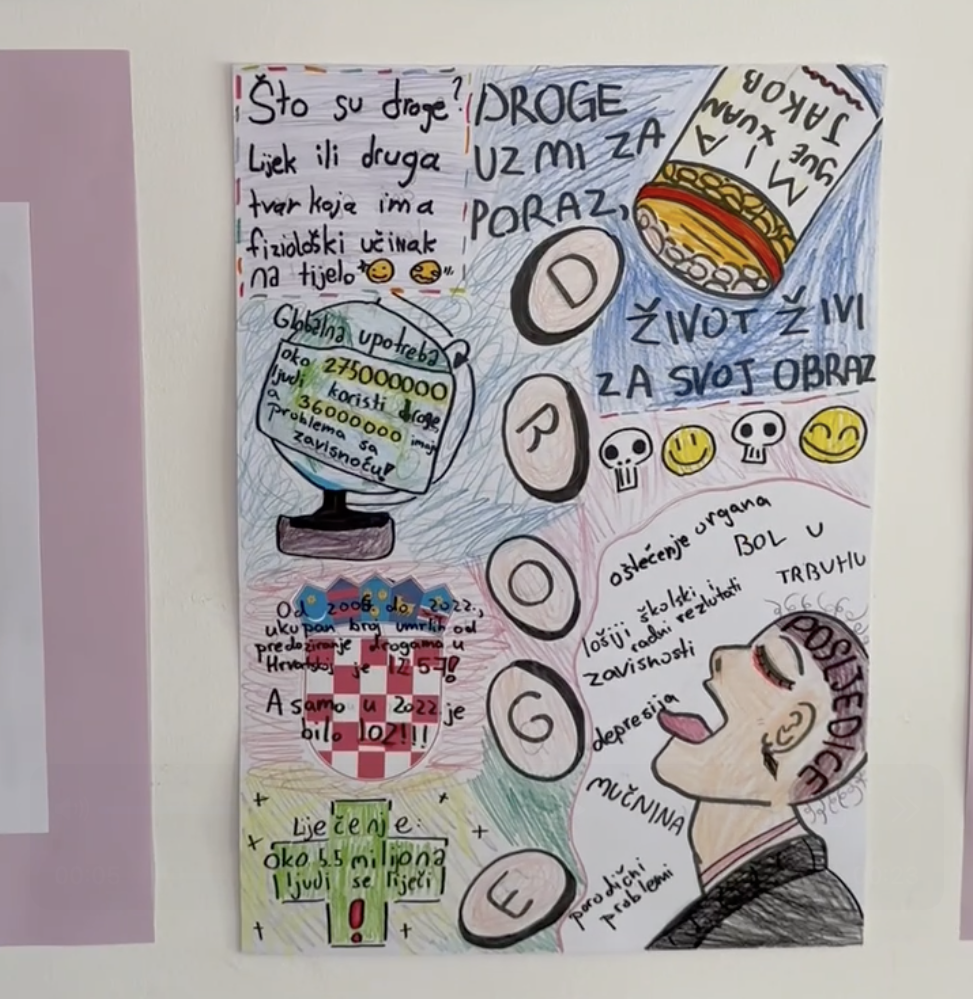 Što su droge?
Lijek ili druga
tvar koja ima
fiziološki učinak
na tijelo
DROGE
UZMI ZA
PORAZ,
MIA
YUE XUAN
JAKOB
ŽIVOT ŽIVI
ZA SVOJ OBRAZ
D
R
O
G
E
Globalna upotreba
oko 275000000
ljudi koristi droge,
a 36000000 imaju
problema sa
zavisnošću!
Od 2006. do 2022.,
ukupan broj umrlih od
predoziranje drogama u
Hrvatskoj je 1257!
A samo u 2022. je
bilo 102!!!
Liječenje:
oko 5.5 milijona
ljudi se liječi
!
oštećenje organa
BOL U
TRBUHU
lošiji školski i
radni rezultati
zavisnosti
depresija
MUČNINA
porodični
problemi
POSLJEDICE